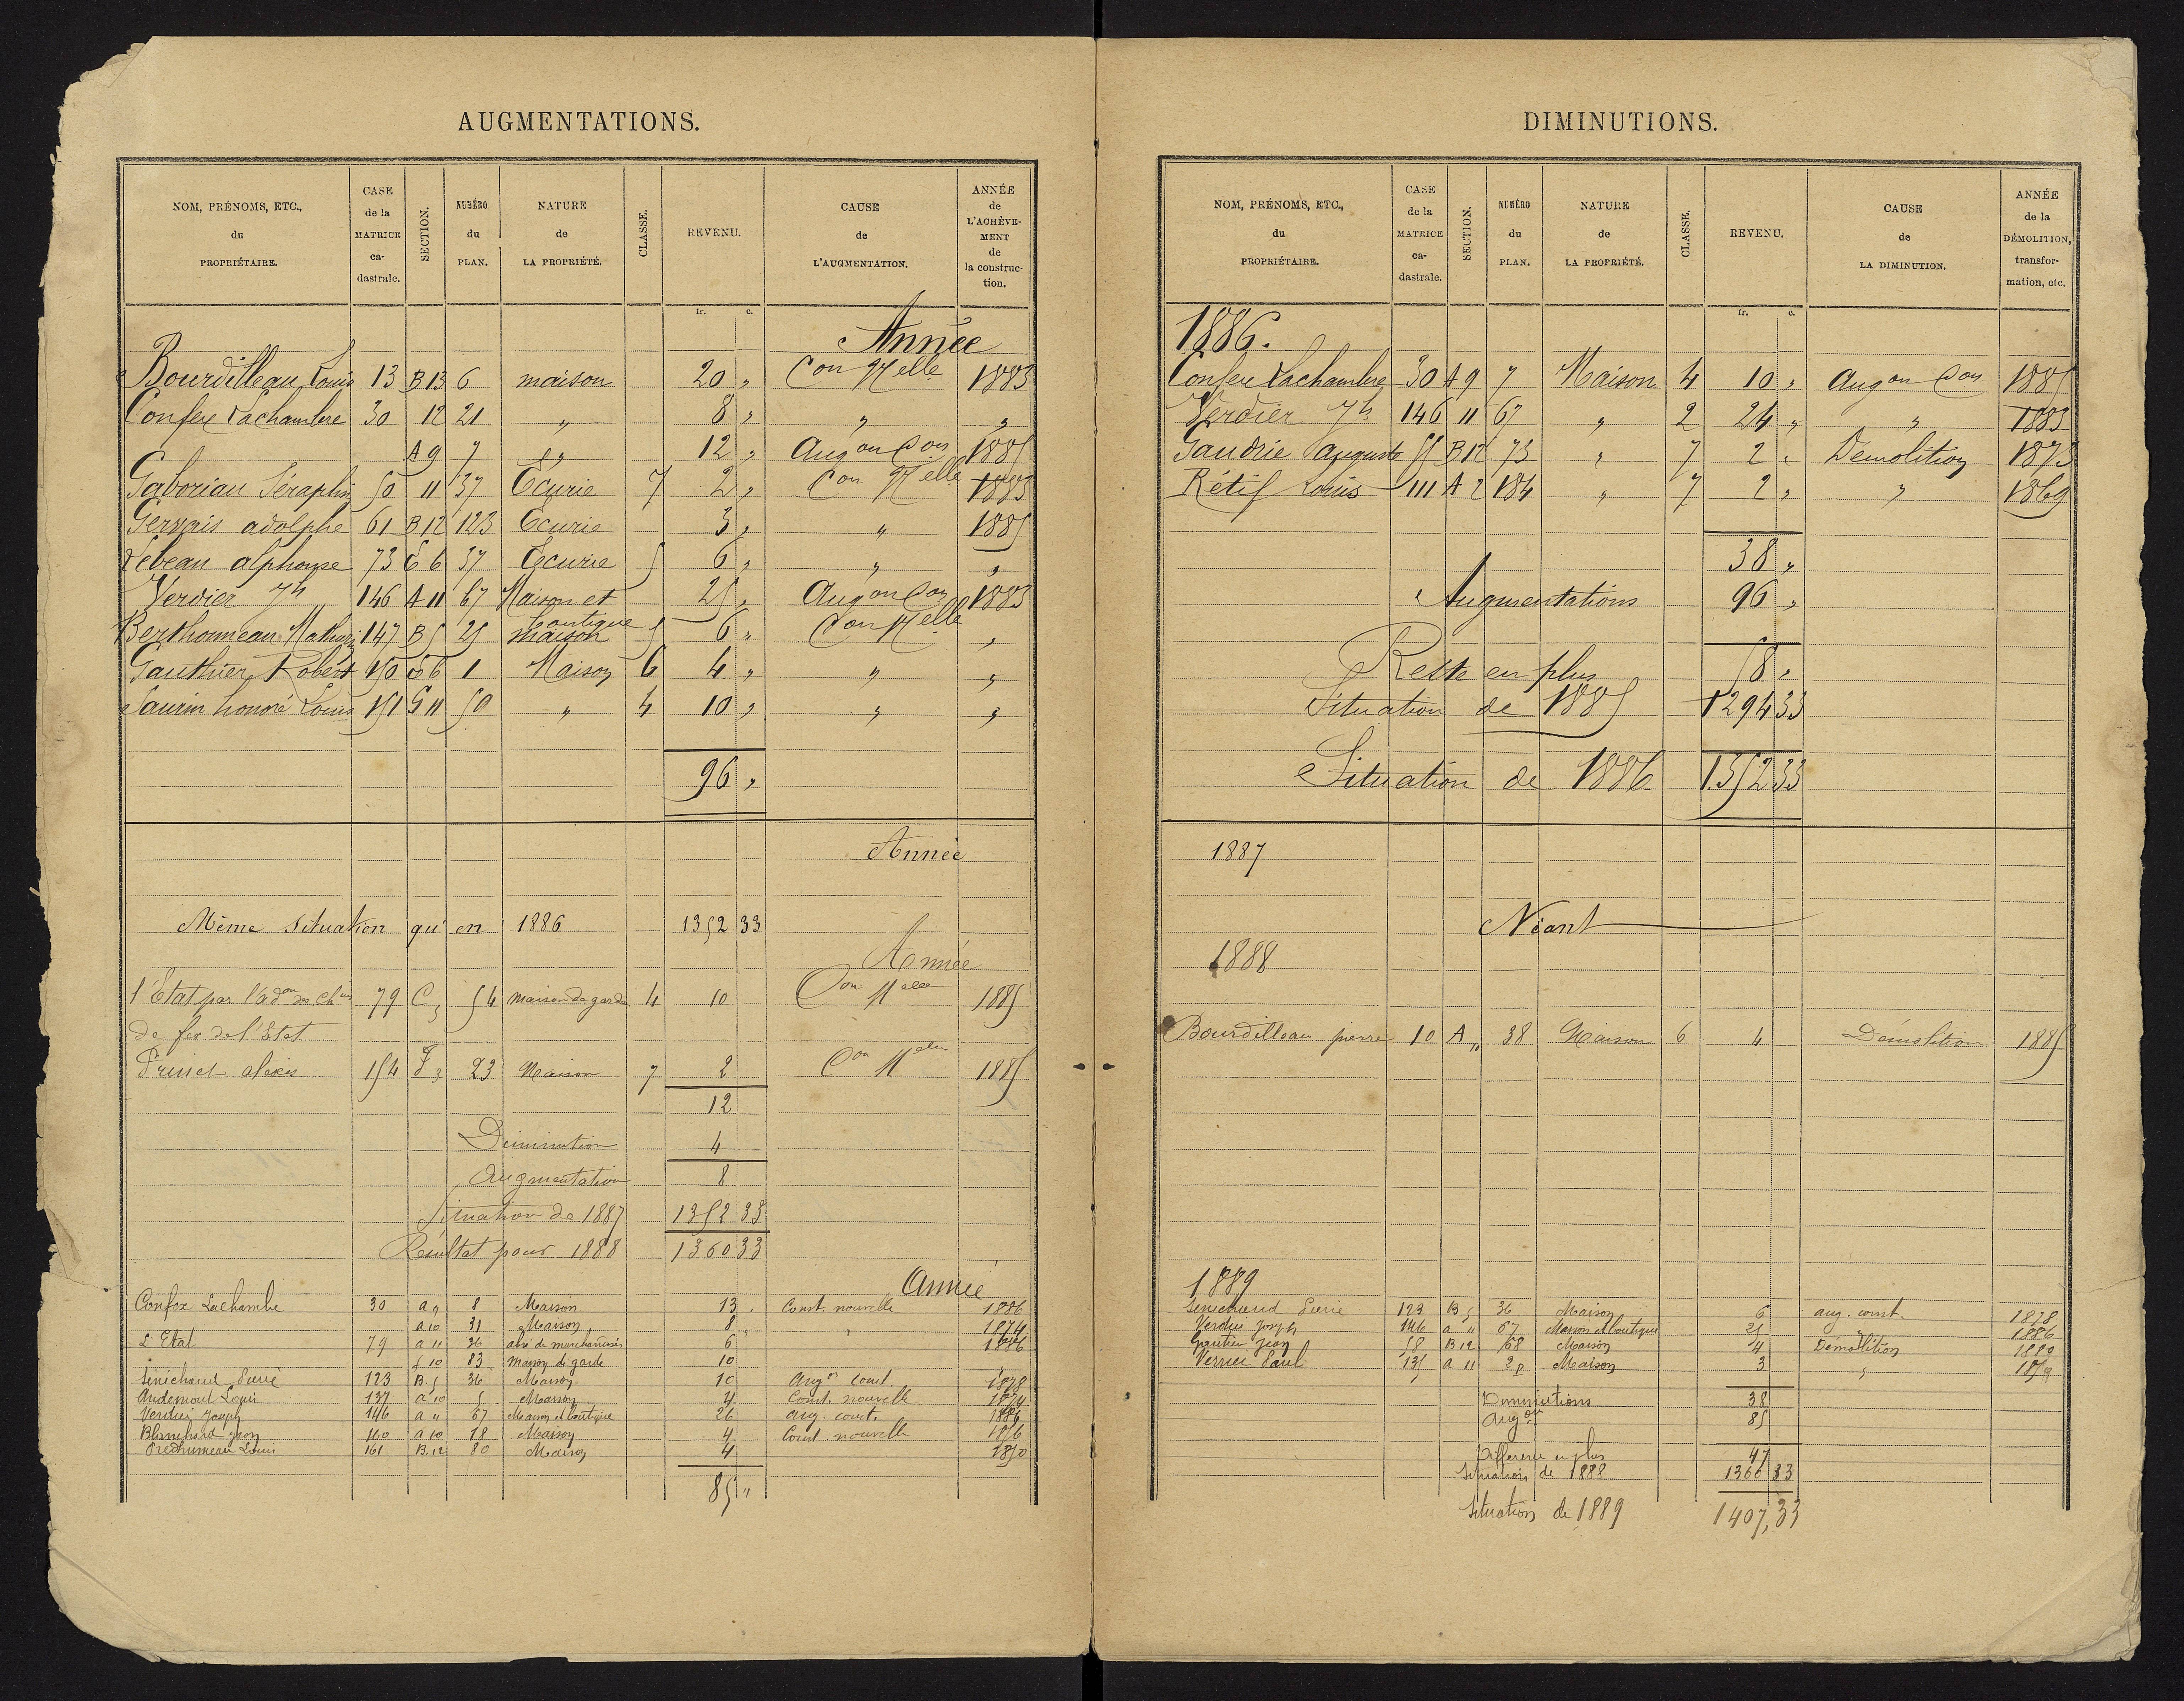 AUGMENTATIONS.
NOM, PRÉNOMS, ETC., du PROPRIÉTAIRE. CASE de la MATRICE ca-dastrale. SECTION. NUMÉRO du PLAN. NATURE de LA PROPRIÉTÉ. CLASSE. REVENU. CAUSE de L'AUGMENTATION. ANNÉE de L'ACHÈVE-MENT de la construc-tion.
fr. c.
Année
Bourdilleau Louis 13 B13 6 maison 20 „ Con Nelle 1883
Confex Lachambre 30 12 21 „ 8 „ „ „
A 9 7 „ 12 „ Augon Con 1885
Gaboriau Séraphin 50 11 37 Écurie 7 2 „ Con Nelle 1883
Gervais adolphe 61 B12 123 Écurie 3 „ „ 1885
Lebeau alphonse 73 6 37 Écurie 5 6 „ „ „
Verdier Jh 146 A 11 67 Maison et boutique 25 „ Augon Con 1883
Berthommeau Mathurin 147 B5 25 maison 5 6 „ Con Nelle „
Gauthier Robert 150 6 1 Maison 6 4 „ „ „
Saurin honoré Louis 151 G 11 50 „ 4 10 „ „ „
96 „
Année
Même situation qu'en 1886 1352 33
Année
l'État par l'adon des chins 79 C3 54 maison de garde 4 10 Con Nelle 1885
de fer de l'État
Prinet alexis 154 F3 23 Maison 7 2 Con Nelle 1885
12
Diminution 4
Augmentation 8
Situation de 1887 1352 33
Résultat pour 1888 1360 33
Année
Confex Lachambre 30 a 9 8 Maison 13 „ Const. nouvelle 1886
a 10 31 Maison 8 „ „ 1874
L'État 79 a 11 36 abri de marchandises 6 1886
f 10 83 Maison de garde 10
Sénéchaud Pierre 123 B.5 36 Maison 10 Augon const. 1878
Audemont Louis 137 a 10 5 Maison 4 Const. nouvelle 1874
Verdier Joseph 146 a 11 67 Maison et boutique 26 aug. const. 1886
Blanchard Jean 160 a 10 18 Maison 4 Const. nouvelle 1876
Louis 161 B.12 80 Maison 4 1850
85 „
DIMINUTIONS.
NOM, PRÉNOMS, ETC., du PROPRIÉTAIRE. CASE de la MATRICE ca-dastrale. SECTION. NUMÉRO du PLAN. NATURE de LA PROPRIÉTÉ. CLASSE. REVENU. CAUSE de LA DIMINUTION. ANNÉE de la DÉMOLITION, transfor-mation, etc.
fr. c.
1886.
Confex Lachambre 30 A 9 7 Maison 4 10 „ Augon Con 1885
Verdier Jh 146 11 67 „ 2 24 „ „ 1883
Gaudrie Auguste 55 B12 73 „ 7 2 „ Démolition 1873
Rétif Louis 111 A 2 184 „ 7 2 „ „ 1869
38 „
Augmentations 96 „
Reste en plus 58 „
Situation de 1885 1294 33
Situation de 1886 1.352 33
1887
Néant
1888
Bourdilleau pierre 10 A11 38 Maison 6 4 Démolition 1885
1889
Sénéchaud Pierre 123 B5 36 Maison 6 aug. const. 1878
Verdier Joseph 146 a 11 67 Maison et boutique 25 1886
Gautier Jean 58 B 12 68 Maison 4 Démolition 1880
Verrier Paul 135 a 11 2p Maison 3 „ 1879
Diminutions 38
Augon 85
Différence en plus 47
Situation de 1888 1360 33
Situation de 1889 1407,33